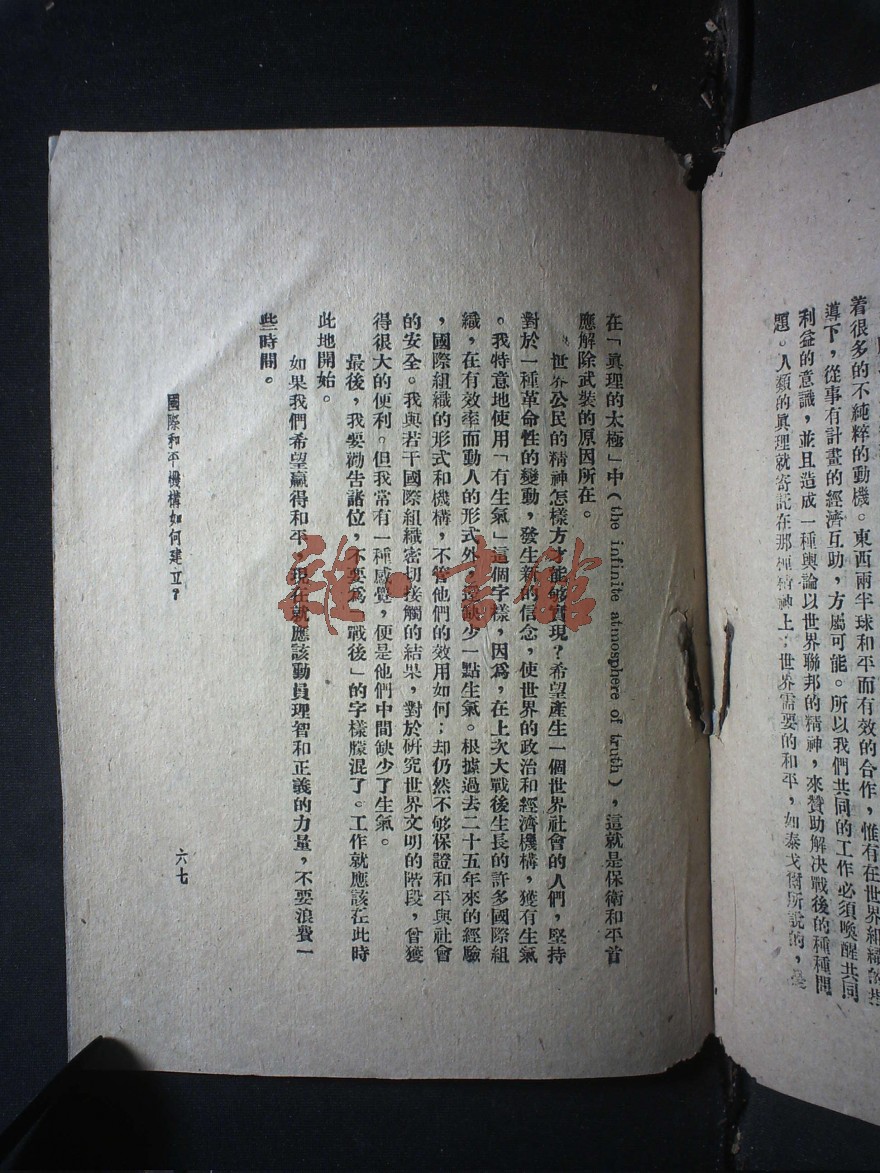 着很多的不純粹的動機。東西兩半球和平而有效的合作，惟有在世界組織的
導下，從事有計畫的經濟互助，方屬可能。所以我們共同的工作必須喚醒共同
利益的意識，並且造成一種輿論以世界聯邦的精神，來贊助解決戰後的種種問
題。人類的眞理就寄託在那種精神上；世界需要的和平，如泰戈爾所說的，是
在「眞理的太極」中（the infinite atmosphere of truth），這就是保衛和平首
應解除武裝的原因所在。
世界公民的精神怎樣方才能够實現？希望產生一個世界社會的人們，堅持
對於一種革命性的變動，發生新的信念，使世界的政治和經濟機構，獲有生氣
。我特意地使用「有生氣」這個字樣，因爲，在上次大戰後生長的許多國際組
織，在有效率而動人的形式外，還缺少一點生氣。根據過去二十五年來的經驗
，國際組織的形式和機構，不管他們的效用如何；却仍然不够保證和平與社會
的安全。我與若干國際組織密切接觸的結果，對於研究世界文明的階段，曾獲
得很大的便利。但我常有一種感覺，便是他們中間缺少了生氣。
最後，我要勸告諸位，不要爲「戰後」的字樣朦混了。工作就應該在此時
此地開始。
如果我們希望贏得和平，現在就應該動員理智和正義的力量，不要浪費一
些時間。
國際和平機構如何建立？
六七
雜·書館